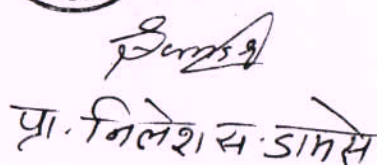 प्रा. निलेश स. डामसे